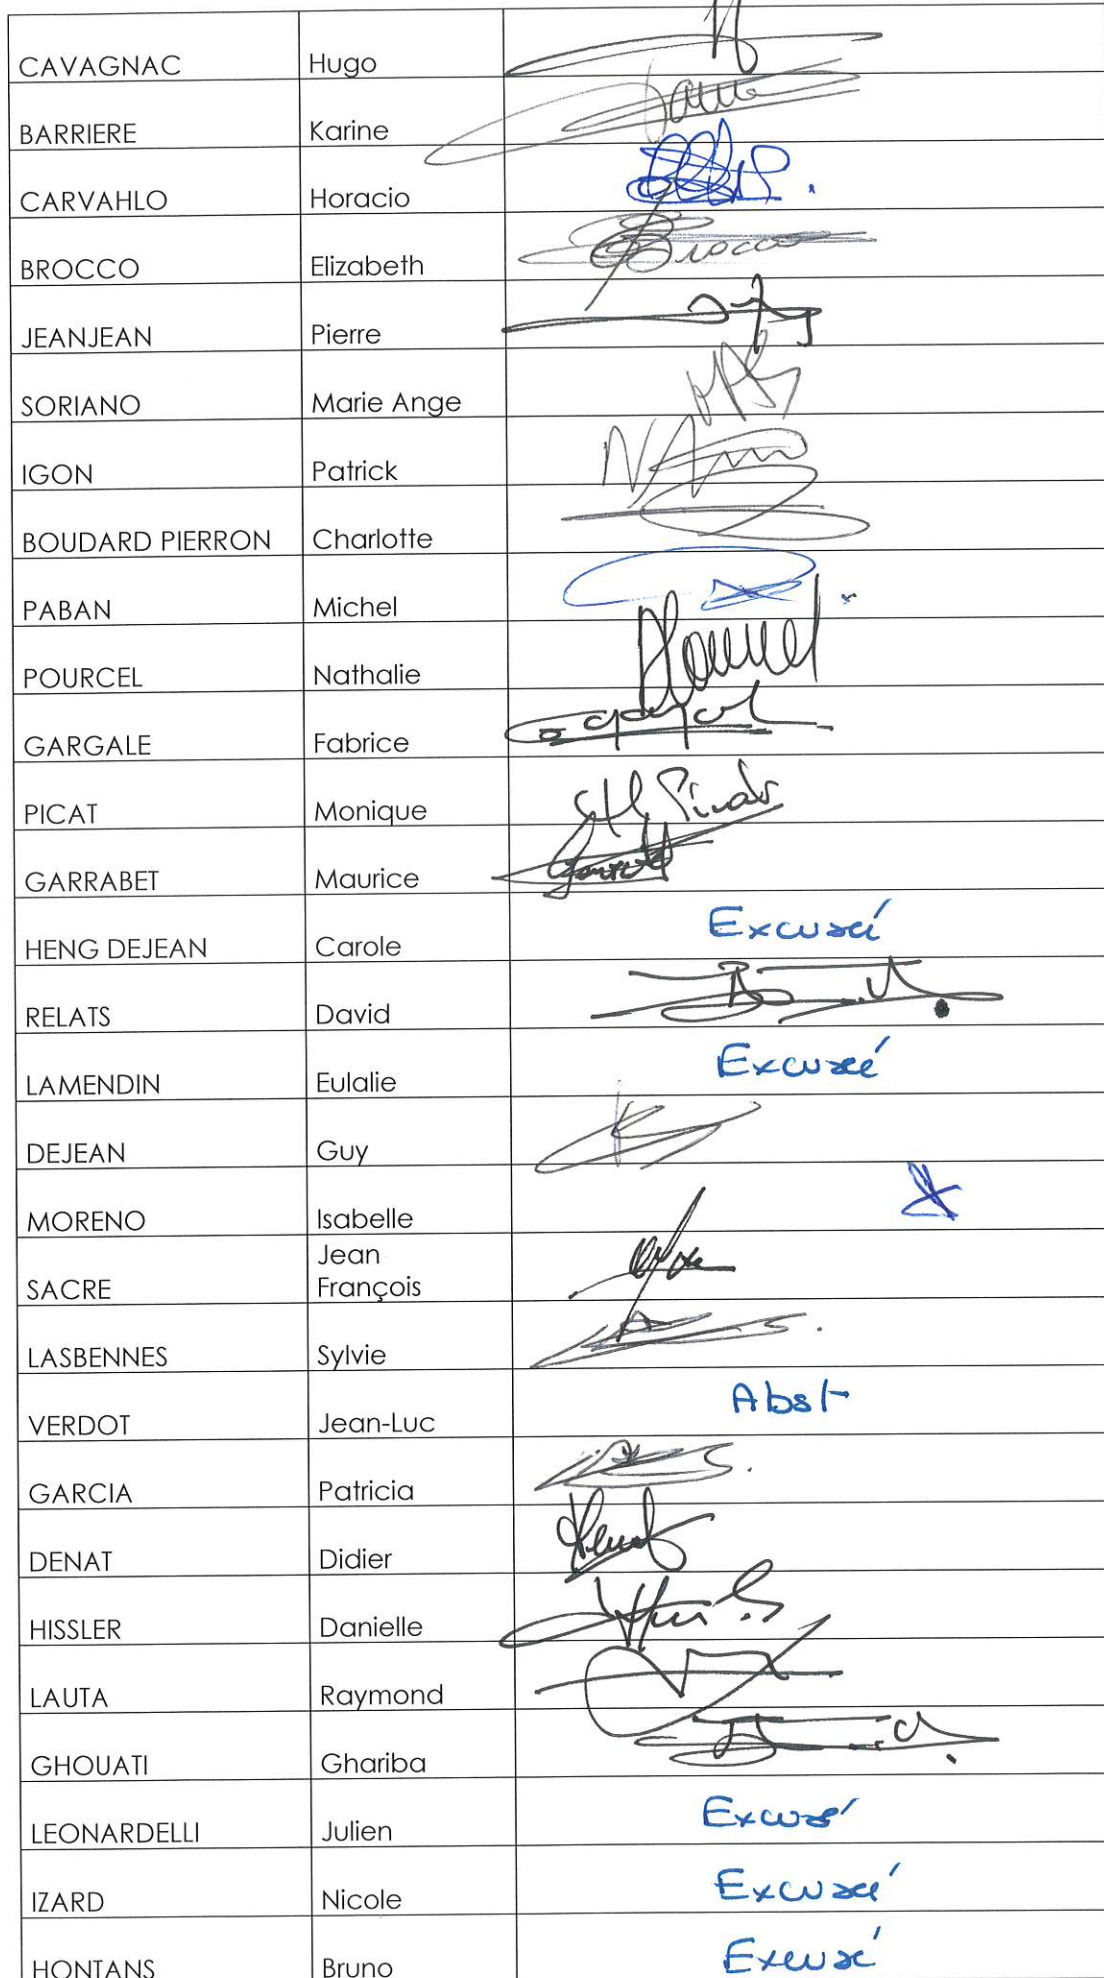 CAVAGNAC Hugo
BARRIERE Karine
CARVAHLO Horacio
BROCCO Elizabeth Brocco
JEANJEAN Pierre
SORIANO Marie Ange
IGON Patrick
BOUDARD PIERRON Charlotte
PABAN Michel
POURCEL Nathalie
GARGALE Fabrice
PICAT Monique Picat
GARRABET Maurice
HENG DEJEAN Carole Excusé
RELATS David
LAMENDIN Eulalie Excusée
DEJEAN Guy
MORENO Isabelle
Jean
SACRE François
LASBENNES Sylvie
VERDOT Jean-Luc Abst
GARCIA Patricia
DENAT Didier
HISSLER Danielle
LAUTA Raymond
GHOUATI Ghariba
LEONARDELLI Julien Excusé
IZARD Nicole Excusé
HONTANS Bruno Excusé